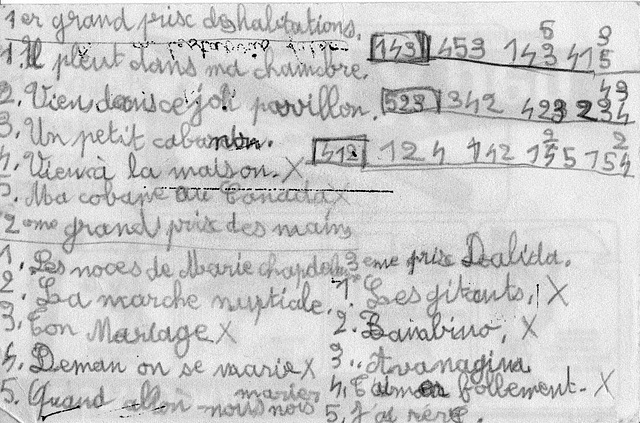 1er grand prix des habitations.
1. Il pleut dans ma chambre.
2. Vien dans ce joli pavillon.
3. Un petit caban
4. Vien à la maison. X
5. Ma cabane au Canada X
143 453 143 415
5 3
523 342 423 234
43
413 124 142 155 154
2 2
2eme grand prix des mains
1. Les noces de Marie chapdel
2. La marche nuptiale.
3. Ton Mariage X
4. Deman on se marie X
5. Quand allon nous nous
marier
3eme prix Dalida.
1. Les gitants, X
2. Bambino, X
3. Avanagina
4. T'aimer follement. X
5. J'ai rêvé.